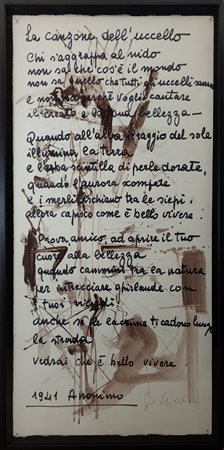 La canzone dell'uccello
Chi s'aggrappa al nido
non sa che cos'è il mondo
non sa quello che tutti gli uccelli sanno
e non sa perché voglia cantare
il creato e la sua bellezza -
Quando all'alba il raggio del sole
illumina la terra
e l'erba scintilla di perle dorate,
quando l'aurora scompare
e i merli fischiano tra le siepi,
allora capisco come è bello vivere.
Prova, amico, ad aprire il tuo
cuore alla bellezza
quando cammini tra la natura
per intrecciare ghirlande con
i tuoi ricordi:
anche se le lacrime ti cadono lungo
la strada
vedrai che è bello vivere.
1941 Anonimo